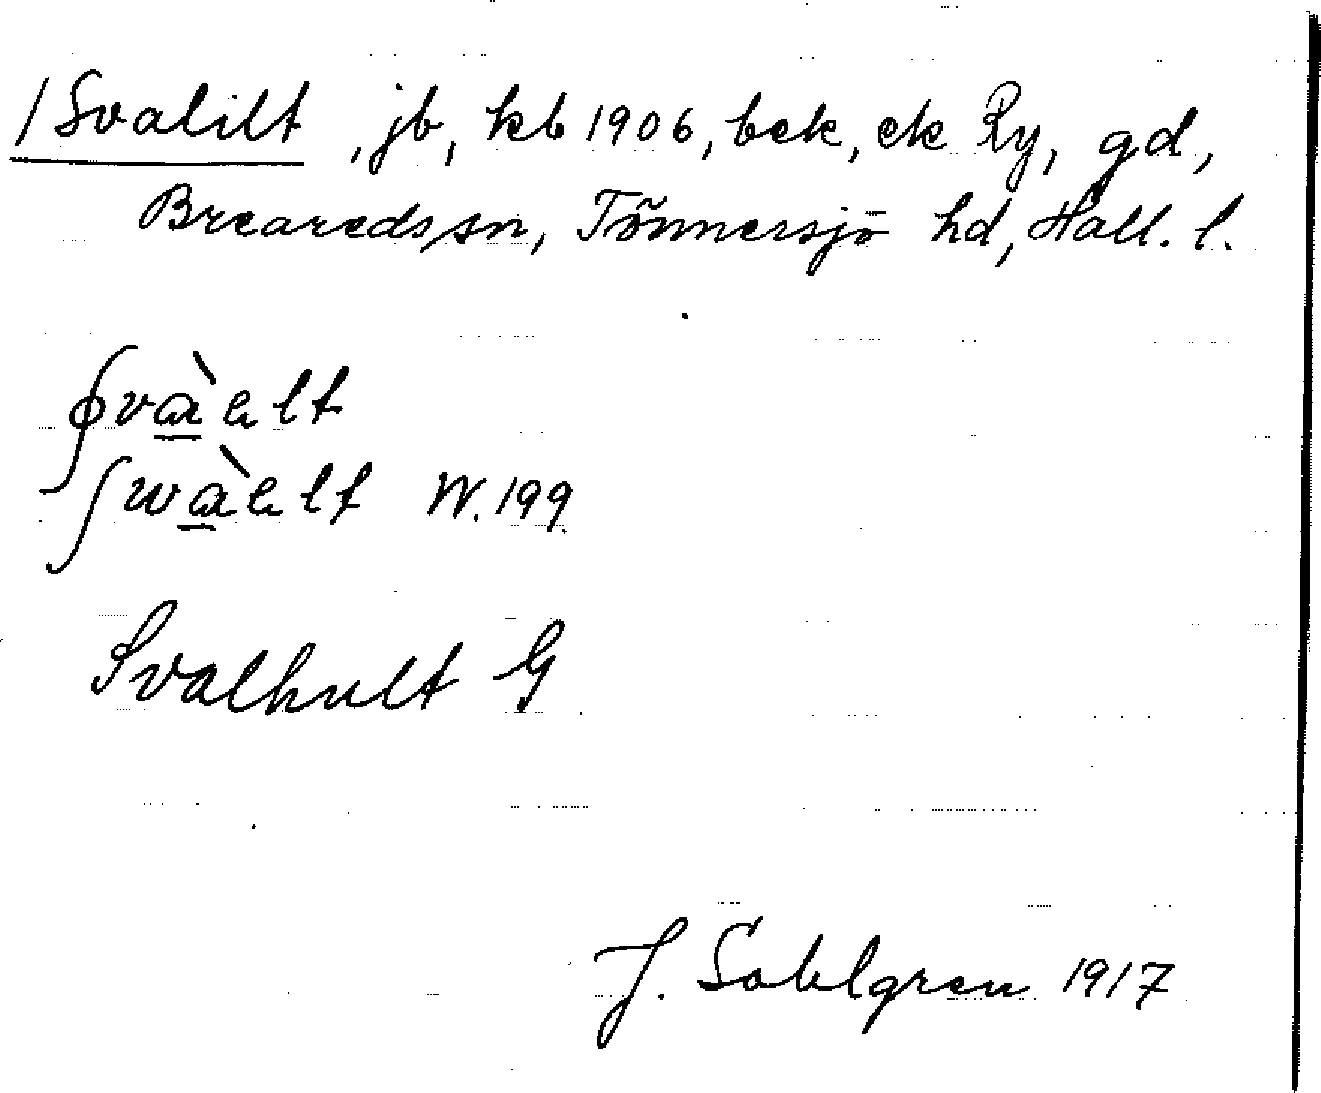 /Svalilt, jb, kb 1906, bek, ek Ry, gd,
Breareds sn, Tönnersjö hd, Hall. l.
W. 199
Svalhult G
J. Sahlgren 1917